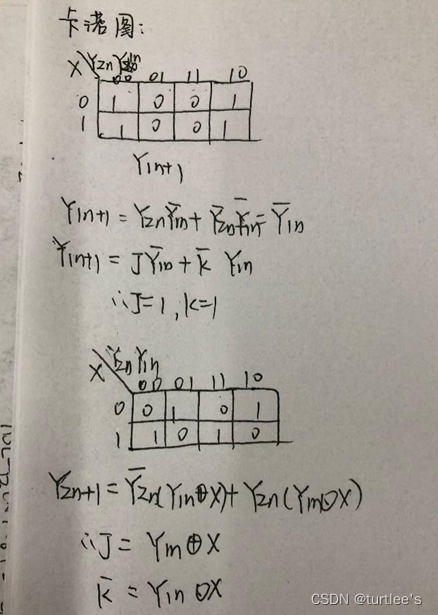 卡诺图:
X Y2n Y1n
00 01 11 10
0 1 0 0 1
1 1 0 0 1
Y1n+1
Y1n+1 = Y2nY̅1n + Y̅2nY̅1n = Y̅1n
Y1n+1 = JY̅1n + K̅ Y1n
∴J=1, K=1
X Y2n Y1n
00 01 11 10
0 0 1 0 1
1 1 0 1 0
Y2n+1 = Y̅2n(Y1n⊕X) + Y2n(Y1n⊙X)
∴J = Y1n⊕X
K̅ = Y1n⊙X
CSDN @turtlee's